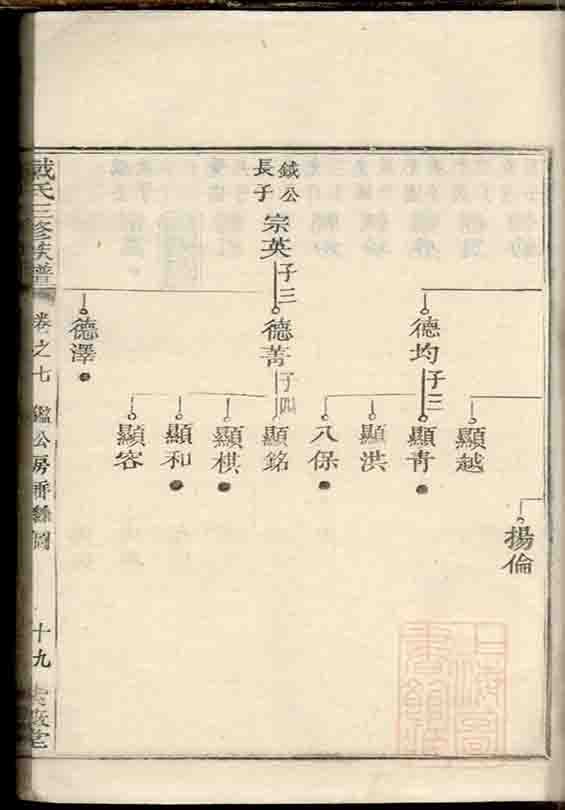 鉞公
長子
宗英
子三
德均
子三
德菁
子四
德澤
顯越
顯青
顯洪
八保
顯銘
顯棋
顯和
顯容
揚倫
戴氏三修族譜
卷之七
鑑公房
圖
十九
上海圖書館藏